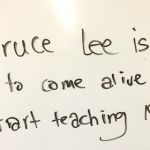 ruce Lee is
to come alive
tart teaching